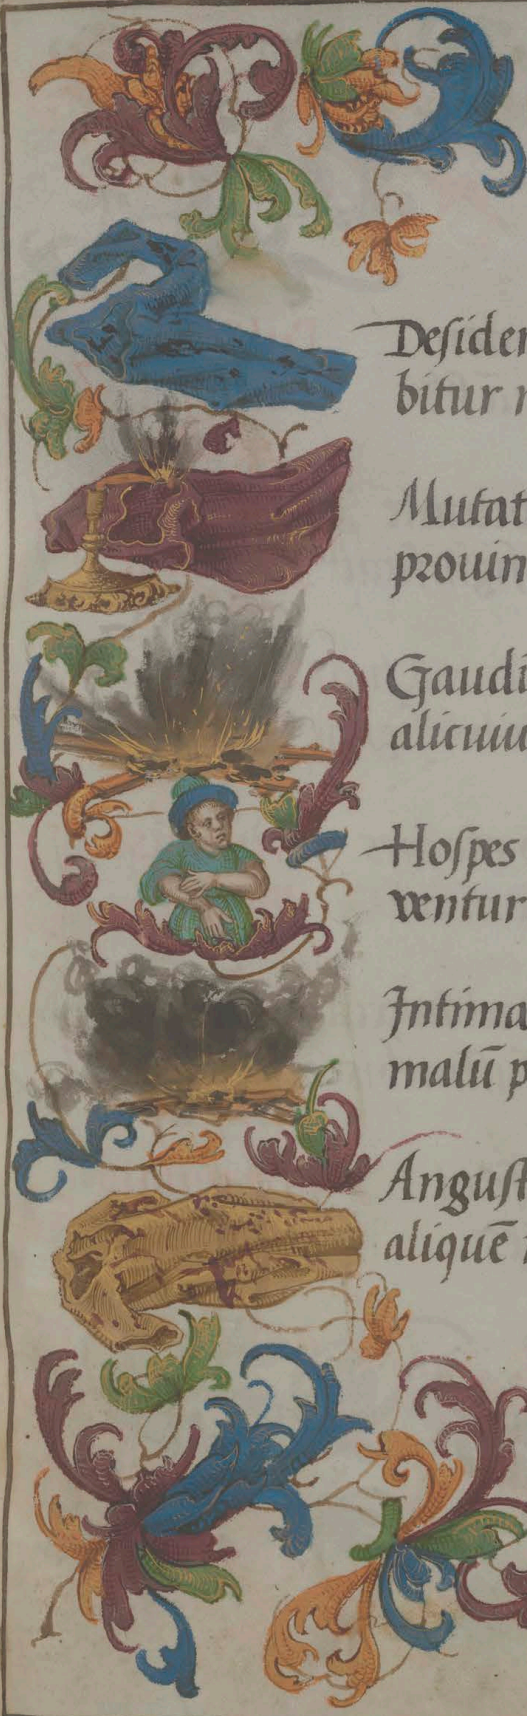 Desider
bitur
Mutat
prouin
Gaudi
alicuiu
Hospes
ventur
Intima
malū p
Angust
aliquē